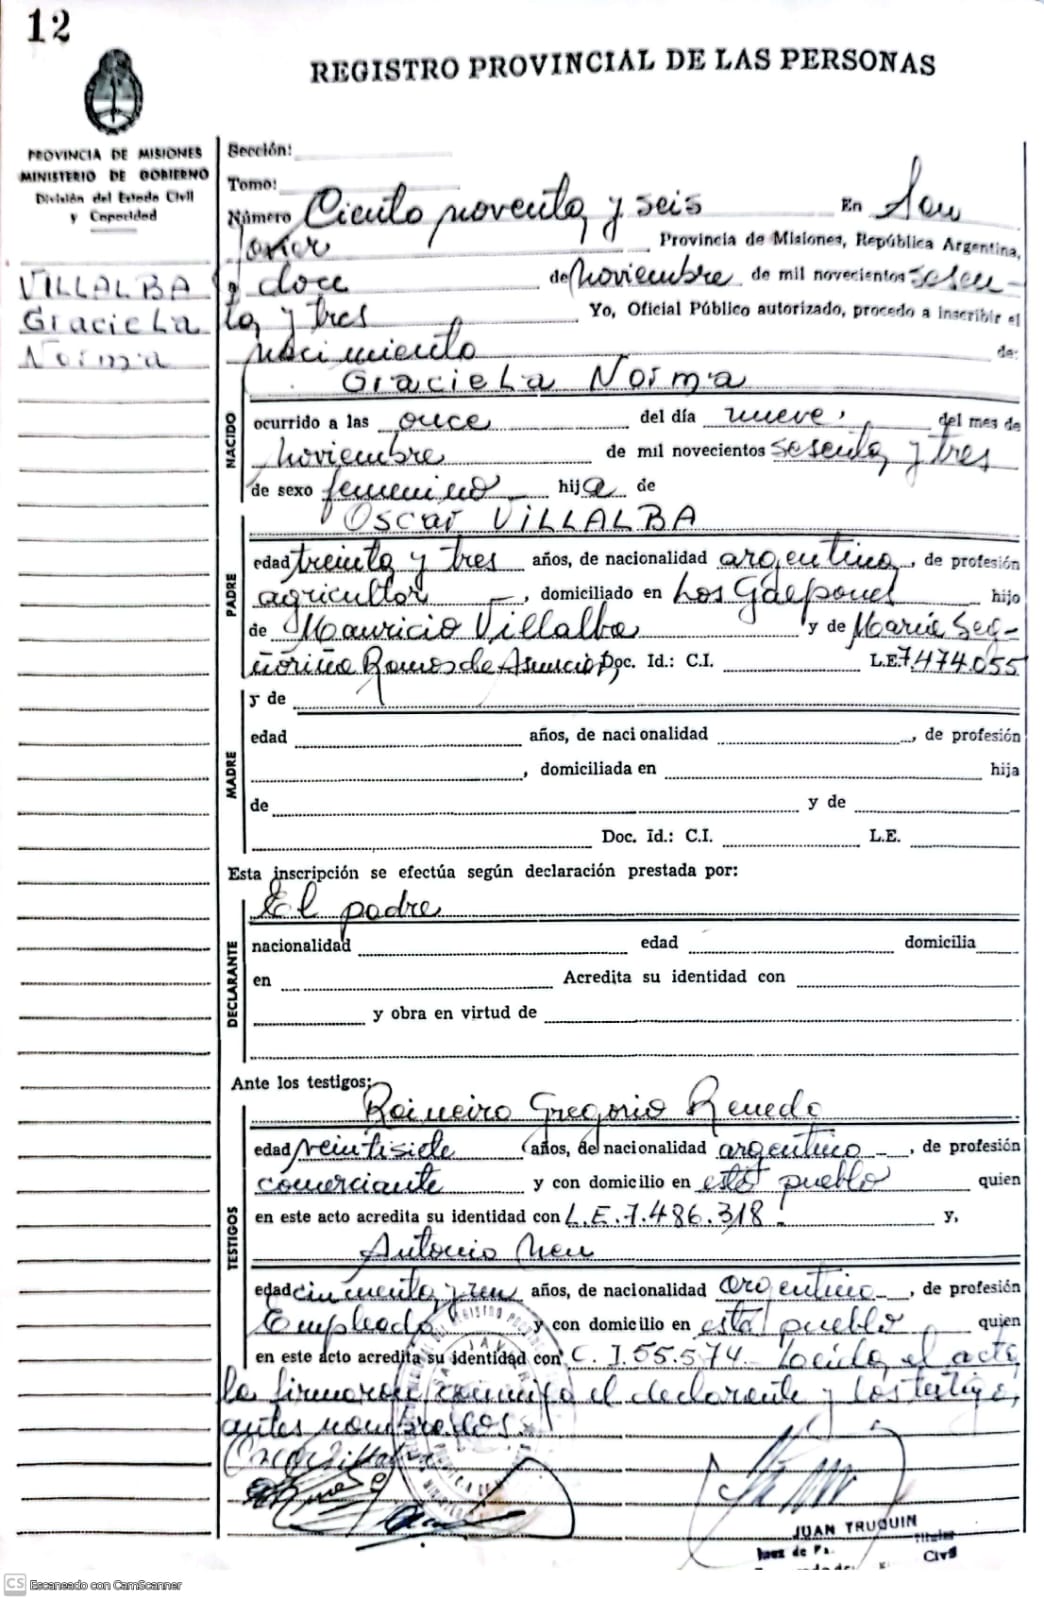 12
REGISTRO PROVINCIAL DE LAS PERSONAS
PROVINCIA DE MISIONES
MINISTERIO DE GOBIERNO
División del Estado Civil
y Capacidad
VILLALBA
Graciela
Norma
Sección:
Tomo:
Número Ciento noventa y seis En San
Javier Provincia de Misiones, República Argentina,
a doce de noviembre de mil novecientos sesen-
ta y tres Yo, Oficial Público autorizado, procedo a inscribir el
nacimiento de:
Graciela Norma
NACIDO
ocurrido a las once del día nueve del mes de
noviembre de mil novecientos sesenta y tres
de sexo femenino hija de
Oscar VILLALBA
PADRE
edad treinta y tres años, de nacionalidad argentina, de profesión
agricultor, domiciliado en Los Galpones hijo
de Mauricio Villalba y de María Se
Ramos de Asunción, Doc. Id.: C.I. L.E. 7.474.055
y de
MADRE
edad años, de nacionalidad , de profesión
, domiciliada en hija
de y de
Doc. Id.: C.I. L.E.
Esta inscripción se efectúa según declaración prestada por:
El padre
DECLARANTE
nacionalidad edad domicilia
en Acredita su identidad con
y obra en virtud de
Ante los testigos:
Gregorio
TESTIGOS
edad veintisiete años, de nacionalidad argentino, de profesión
comerciante y con domicilio en este pueblo quien
en este acto acredita su identidad con L.E. 7.486.318. y,
Antonio
edad cincuenta y un años, de nacionalidad argentino, de profesión
Empleado y con domicilio en este pueblo quien
en este acto acredita su identidad con C.I. 55.574. Leída el acta
la firmaron conmigo el declarante y los testigos
antes nombrados.
Oscar Villalba
JUAN TRUQUIN
Juez de Titular
Civil
CS Escaneado con CamScanner